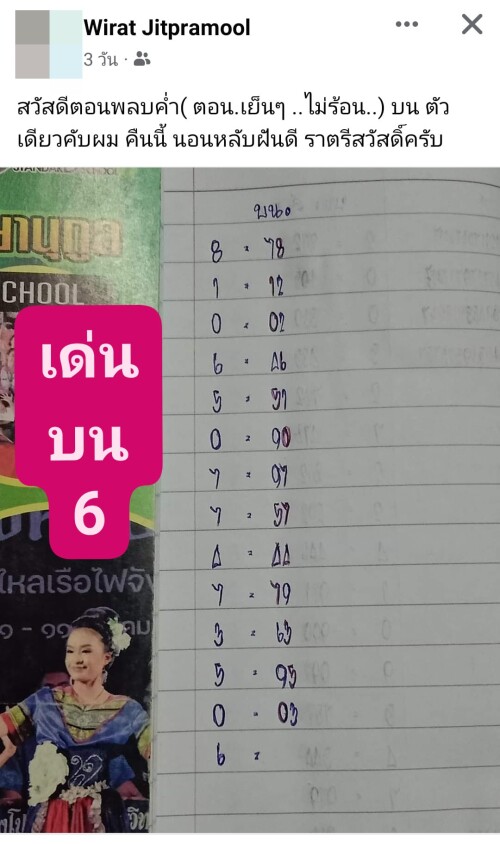 Wirat Jitpramool
3 วัน
สวัสดีตอนพลบค่ำ( ตอน.เย็นๆ ..ไม่ร้อน..) บน ตัว
เดียวคับผม คืนนี้ นอนหลับฝันดี ราตรีสวัสดิ์ครับ
STANDARD SCHOOL
ยานุกูล
CHOOL
เด่น
บน
6
ไหลเรือไฟจั
๑ - ๑๑
คม
บน.
8 = 78
1 = 12
0 = 02
6 = 46
5 = 57
0 = 90
7 = 97
7 = 57
4 = 44
7 = 79
3 = 63
5 = 95
0 = 03
6 =